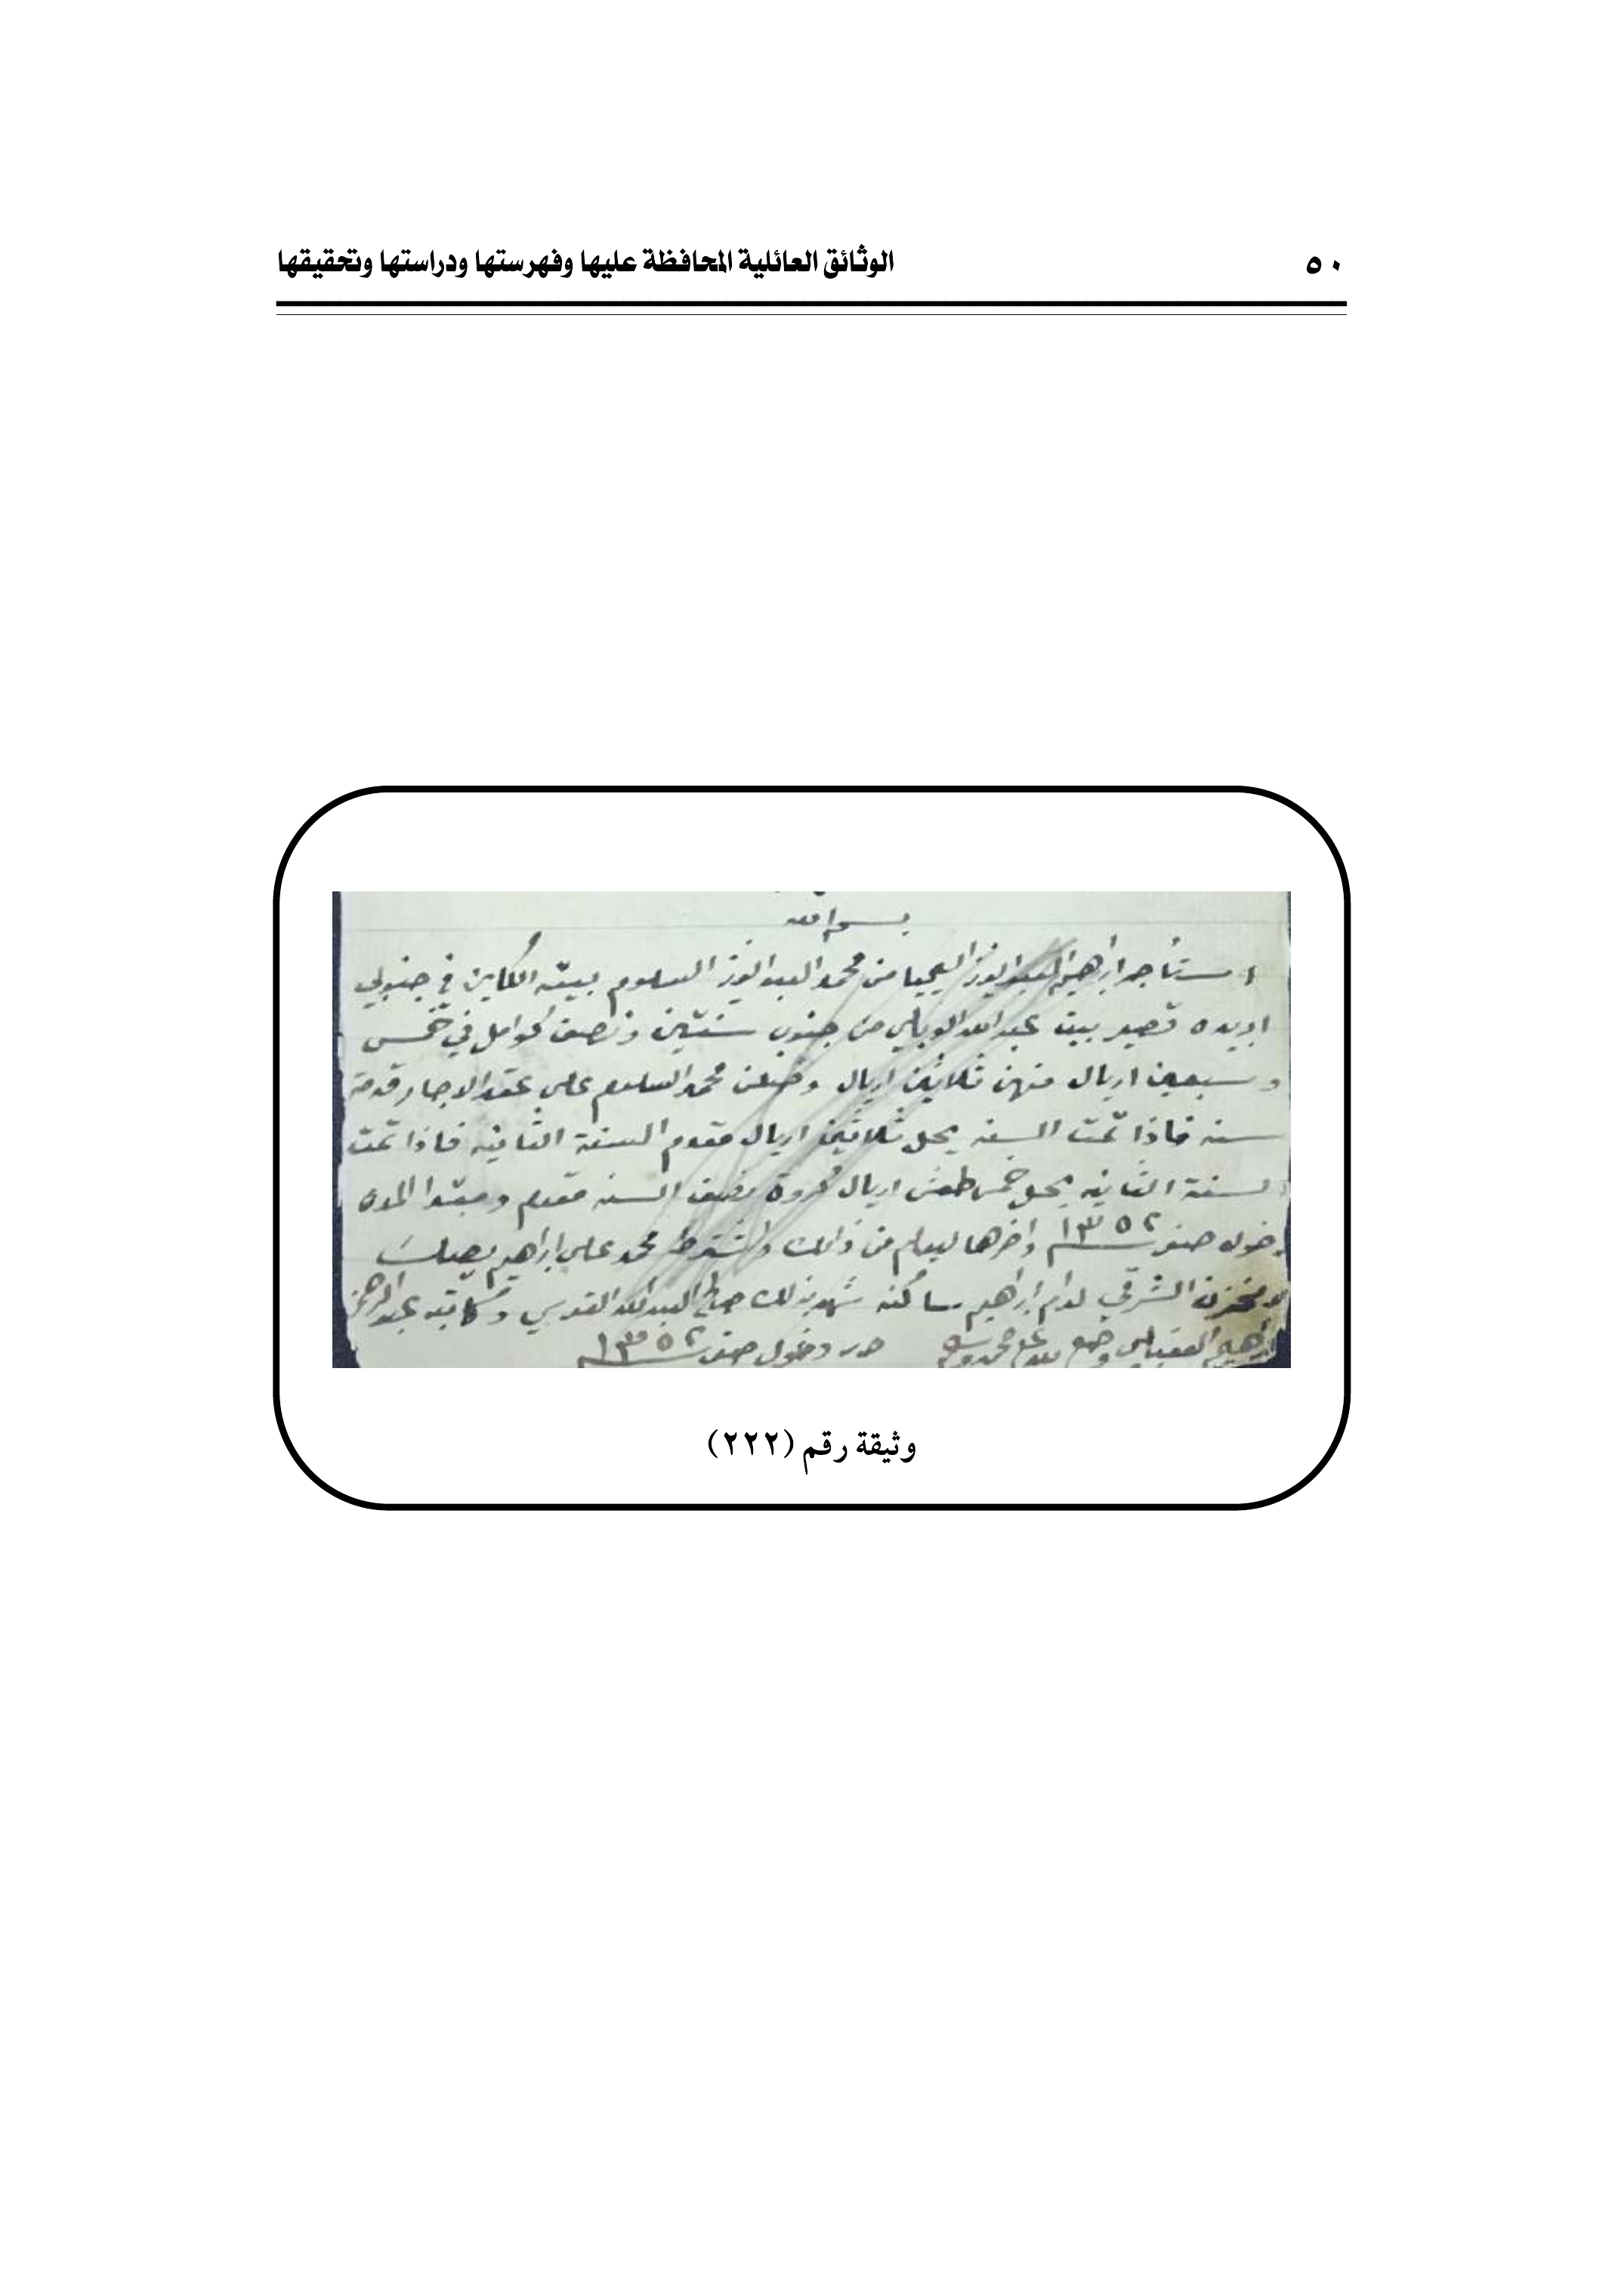 ٥٠
الوثائق العائلية المحافظة عليها وفهرستها ودراستها وتحقيقها
بسم الله
استأجر ابراهيم العبدالعزيز اليحيا من محمد العبدالعزيز السلوم بيته الكاين في جنوبي
ابريده قصير بيت عبدالله الوبلي من جنوب سنتين ونصف كوامل في خمس
وسبعين اريال منهن ثلاثين اريال وصلن محمد السلوم على عقد الاجار قدمة
سنه فاذا تمت السنه يحل ثلاثين اريال مقدم السنة الثانيه فاذا تمت
السنة الثانيه يحل خمس طعش اريال كروة نصف السنه مقدم ومبتدا المده
دخول صفر ١٣٥٢ واخرها ليعلم من ذلك واشترط محمد على ابراهيم يصلك
المخزن الشرقي لدام ابراهيم ساكنه شهد بذلك صالح العبدالله القوسي وكاتبه عبدالرحمن
ابراهيم محمد وسلم حرر دخول صفر ١٣٥٢
وثيقة رقم (٢٢٢)